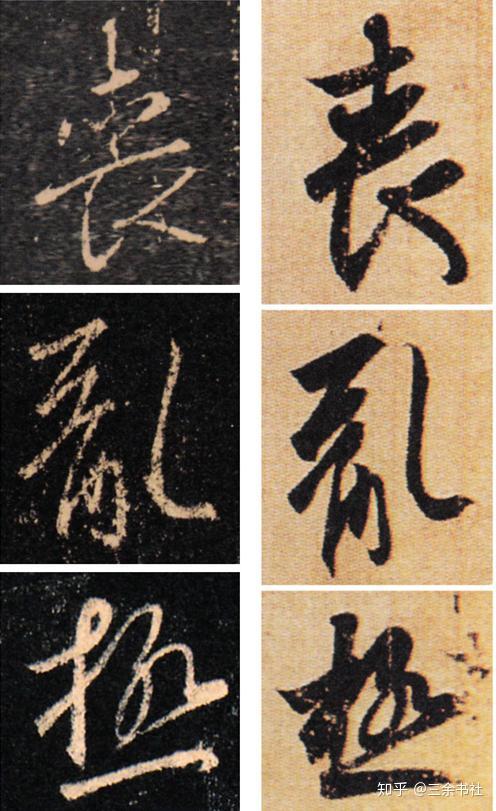 喪 喪
亂 亂
極 極
知乎 @三余书社